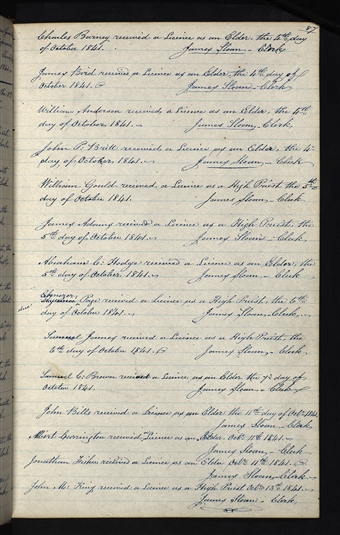 Charles Burney received a Licence as an Elder the 4th day
of October 1841. James Sloan - Clerk
James Bird received a Licence as an Elder the 4th day of
October 1841. James Sloan - Clerk
William Anderson received a Licence as an Elder, the 4th
day of October 1841. James Sloan, Clerk.
John P. Britt received a Licence as an Elder, the 4
day of October 1841. James Sloan - Clerk
William Gould received a Licence as a High Priest the 5th
day of October 1841. James Sloan - Clerk
James Adams received a Licence as a High Priest, the
5th day of October 1841. James Sloan - Clerk.
Abraham C. Hodge received a Licence as an Elder, the
5th day of October 1841. James Sloan - Clerk
Ebenezer
Page received a Licence as a High Priest the 6th
day of October 1841. James Sloan, Clerk.
Samuel James received a Licence as a High Priest, the
6th day of October 1841. James Sloan, Clerk.
Samuel C. Brown received a Licence, as an Elder the 7th day of
October 1841. James Sloan - Clerk
John Bills received a Licence as an Elder the 11th day of Octr 1841.
James Sloan - Clerk
received Licence as an Elder Octr 11th 1841.
James Sloan, Clerk
Jonathan Fisher received a Licence as an Elder Octr 11th 1841.
James Sloan, Clerk
John M. King received a Licence as a High Priest Octr 13th 1841.
James Sloan - Clerk